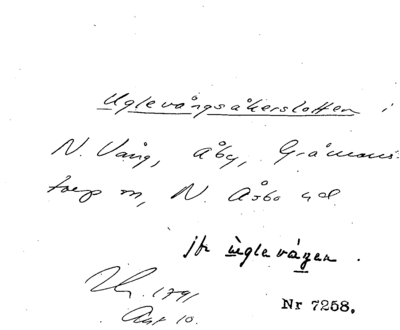 Uglevångsåkerslotten i
N. Vång, Åby, Gråmans-
torp sn, N. Åsbo hd
jfr uglevågen.
1791
Akt 10.
Nr 7258.